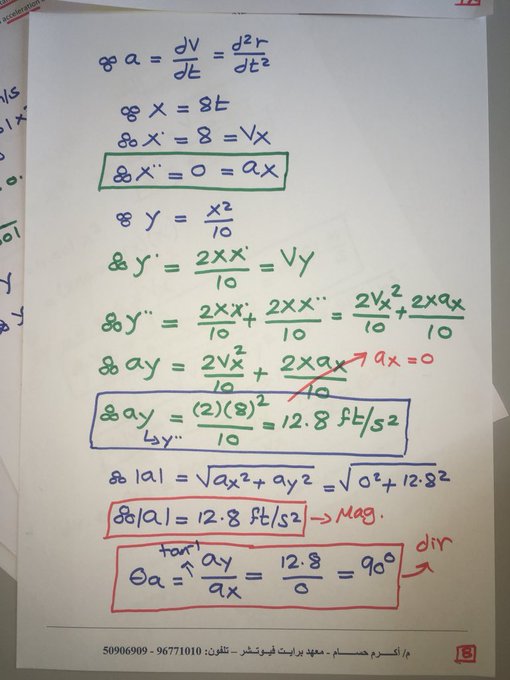 ஃ a = dV/dt = d²r/dt²
ஃ x = 8t
ஃ x˙ = 8 = Vx
ஃ x¨ = 0 = ax
ஃ y = x²/10
ஃ y˙ = 2xx˙/10 = Vy
ஃ y¨ = 2x˙x˙/10 + 2xx¨/10 = 2Vx²/10 + 2xax/10
ஃ ay = 2Vx²/10 + 2xax/10 → ax = 0
ஃ ay = (2)(8)²/10 = 12.8 ft/s²
↳ y¨
ஃ |a| = √ax² + ay² = √0² + 12.8²
ஃ |a| = 12.8 ft/s² → Mag.
θa = tan⁻¹ ay/ax = 12.8/0 = 90° → dir
م/ أكـــرم حســـام - معهد برايت فيوتـشر – تلفون: 96771010 - 50906909
8